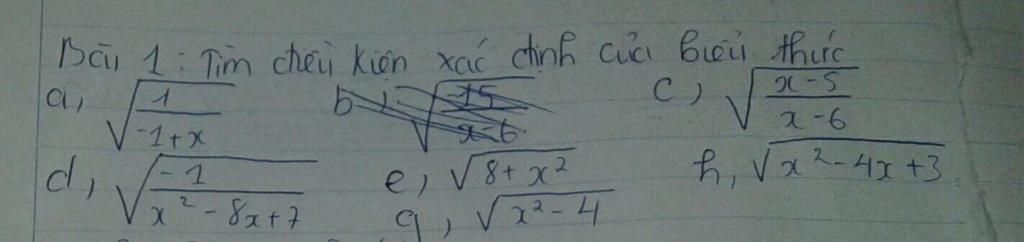 Bài 1: Tìm điều kiện xác định của biểu thức
a, √(1/(-1+x)) c) √((x-5)/(x-6))
d, √(-1/(x²-8x+7)) e) √(8+x²) h, √(x²-4x+3)
g, √(x²-4)